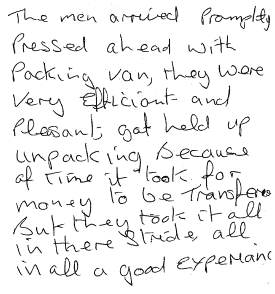 The men arrived Promptly
Pressed ahead with
Packing van, they were
very efficient and
Pleasant, got held up
unpacking because
of time it took for
money to be Transfere
But they took it all
in there stride all
in all a good experianc